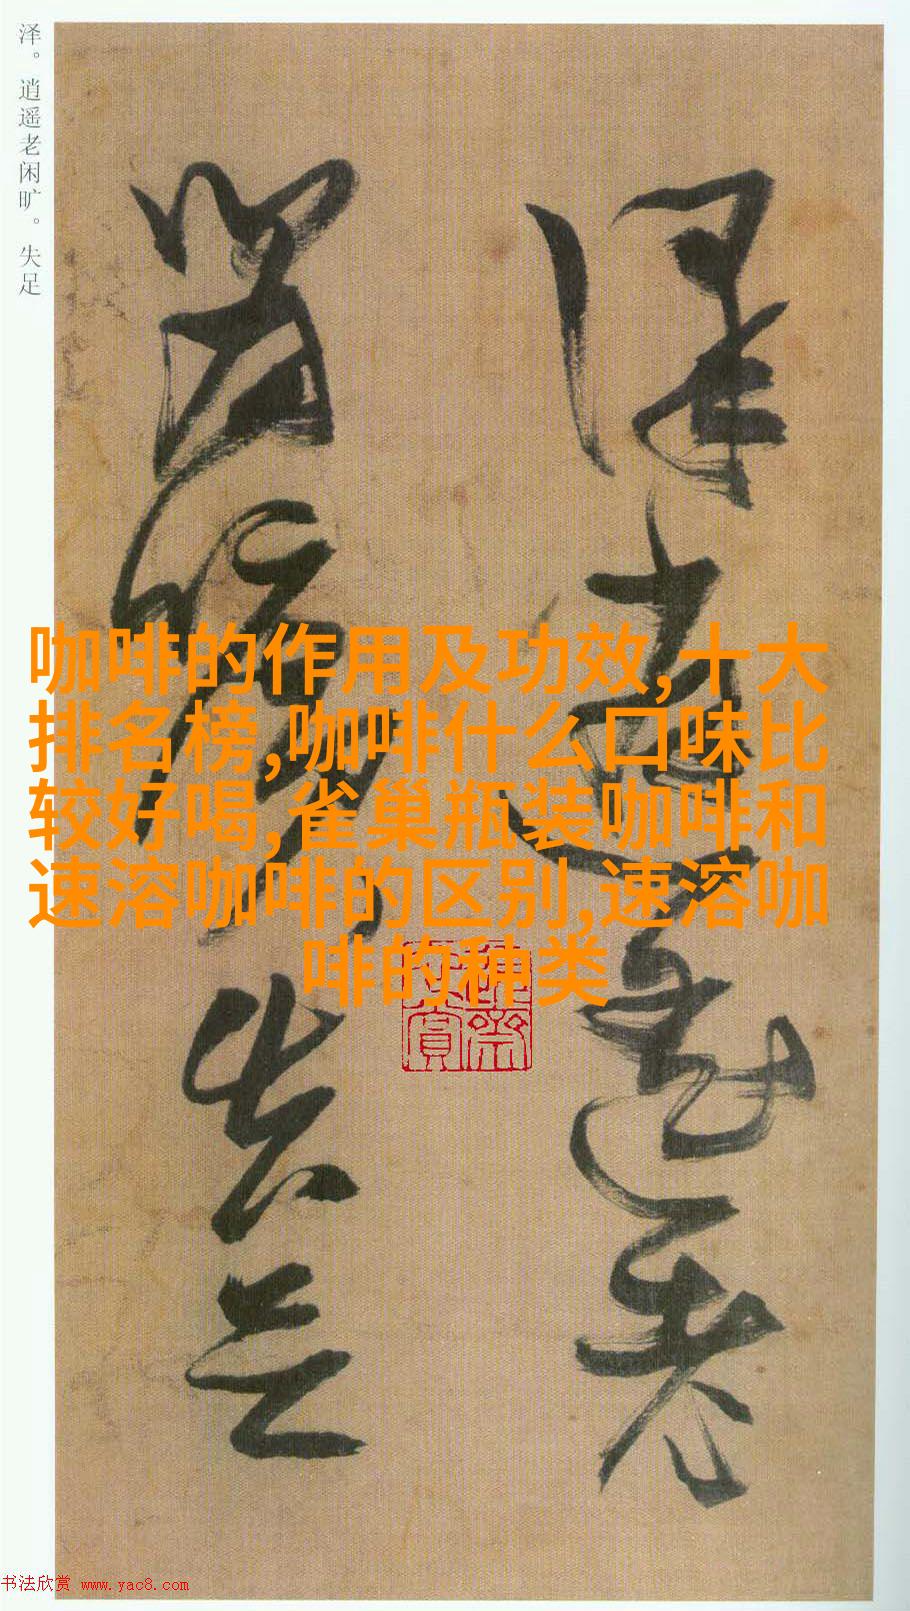 泽。逍遥老闲旷。失足
泽逍遥老
闲旷失足
咖啡的作用及功效,十大
排名榜,咖啡什么口味比
较好喝,雀巢瓶装咖啡和
速溶咖啡的区别,速溶咖
啡的种类
书法欣赏 www.yac8.com